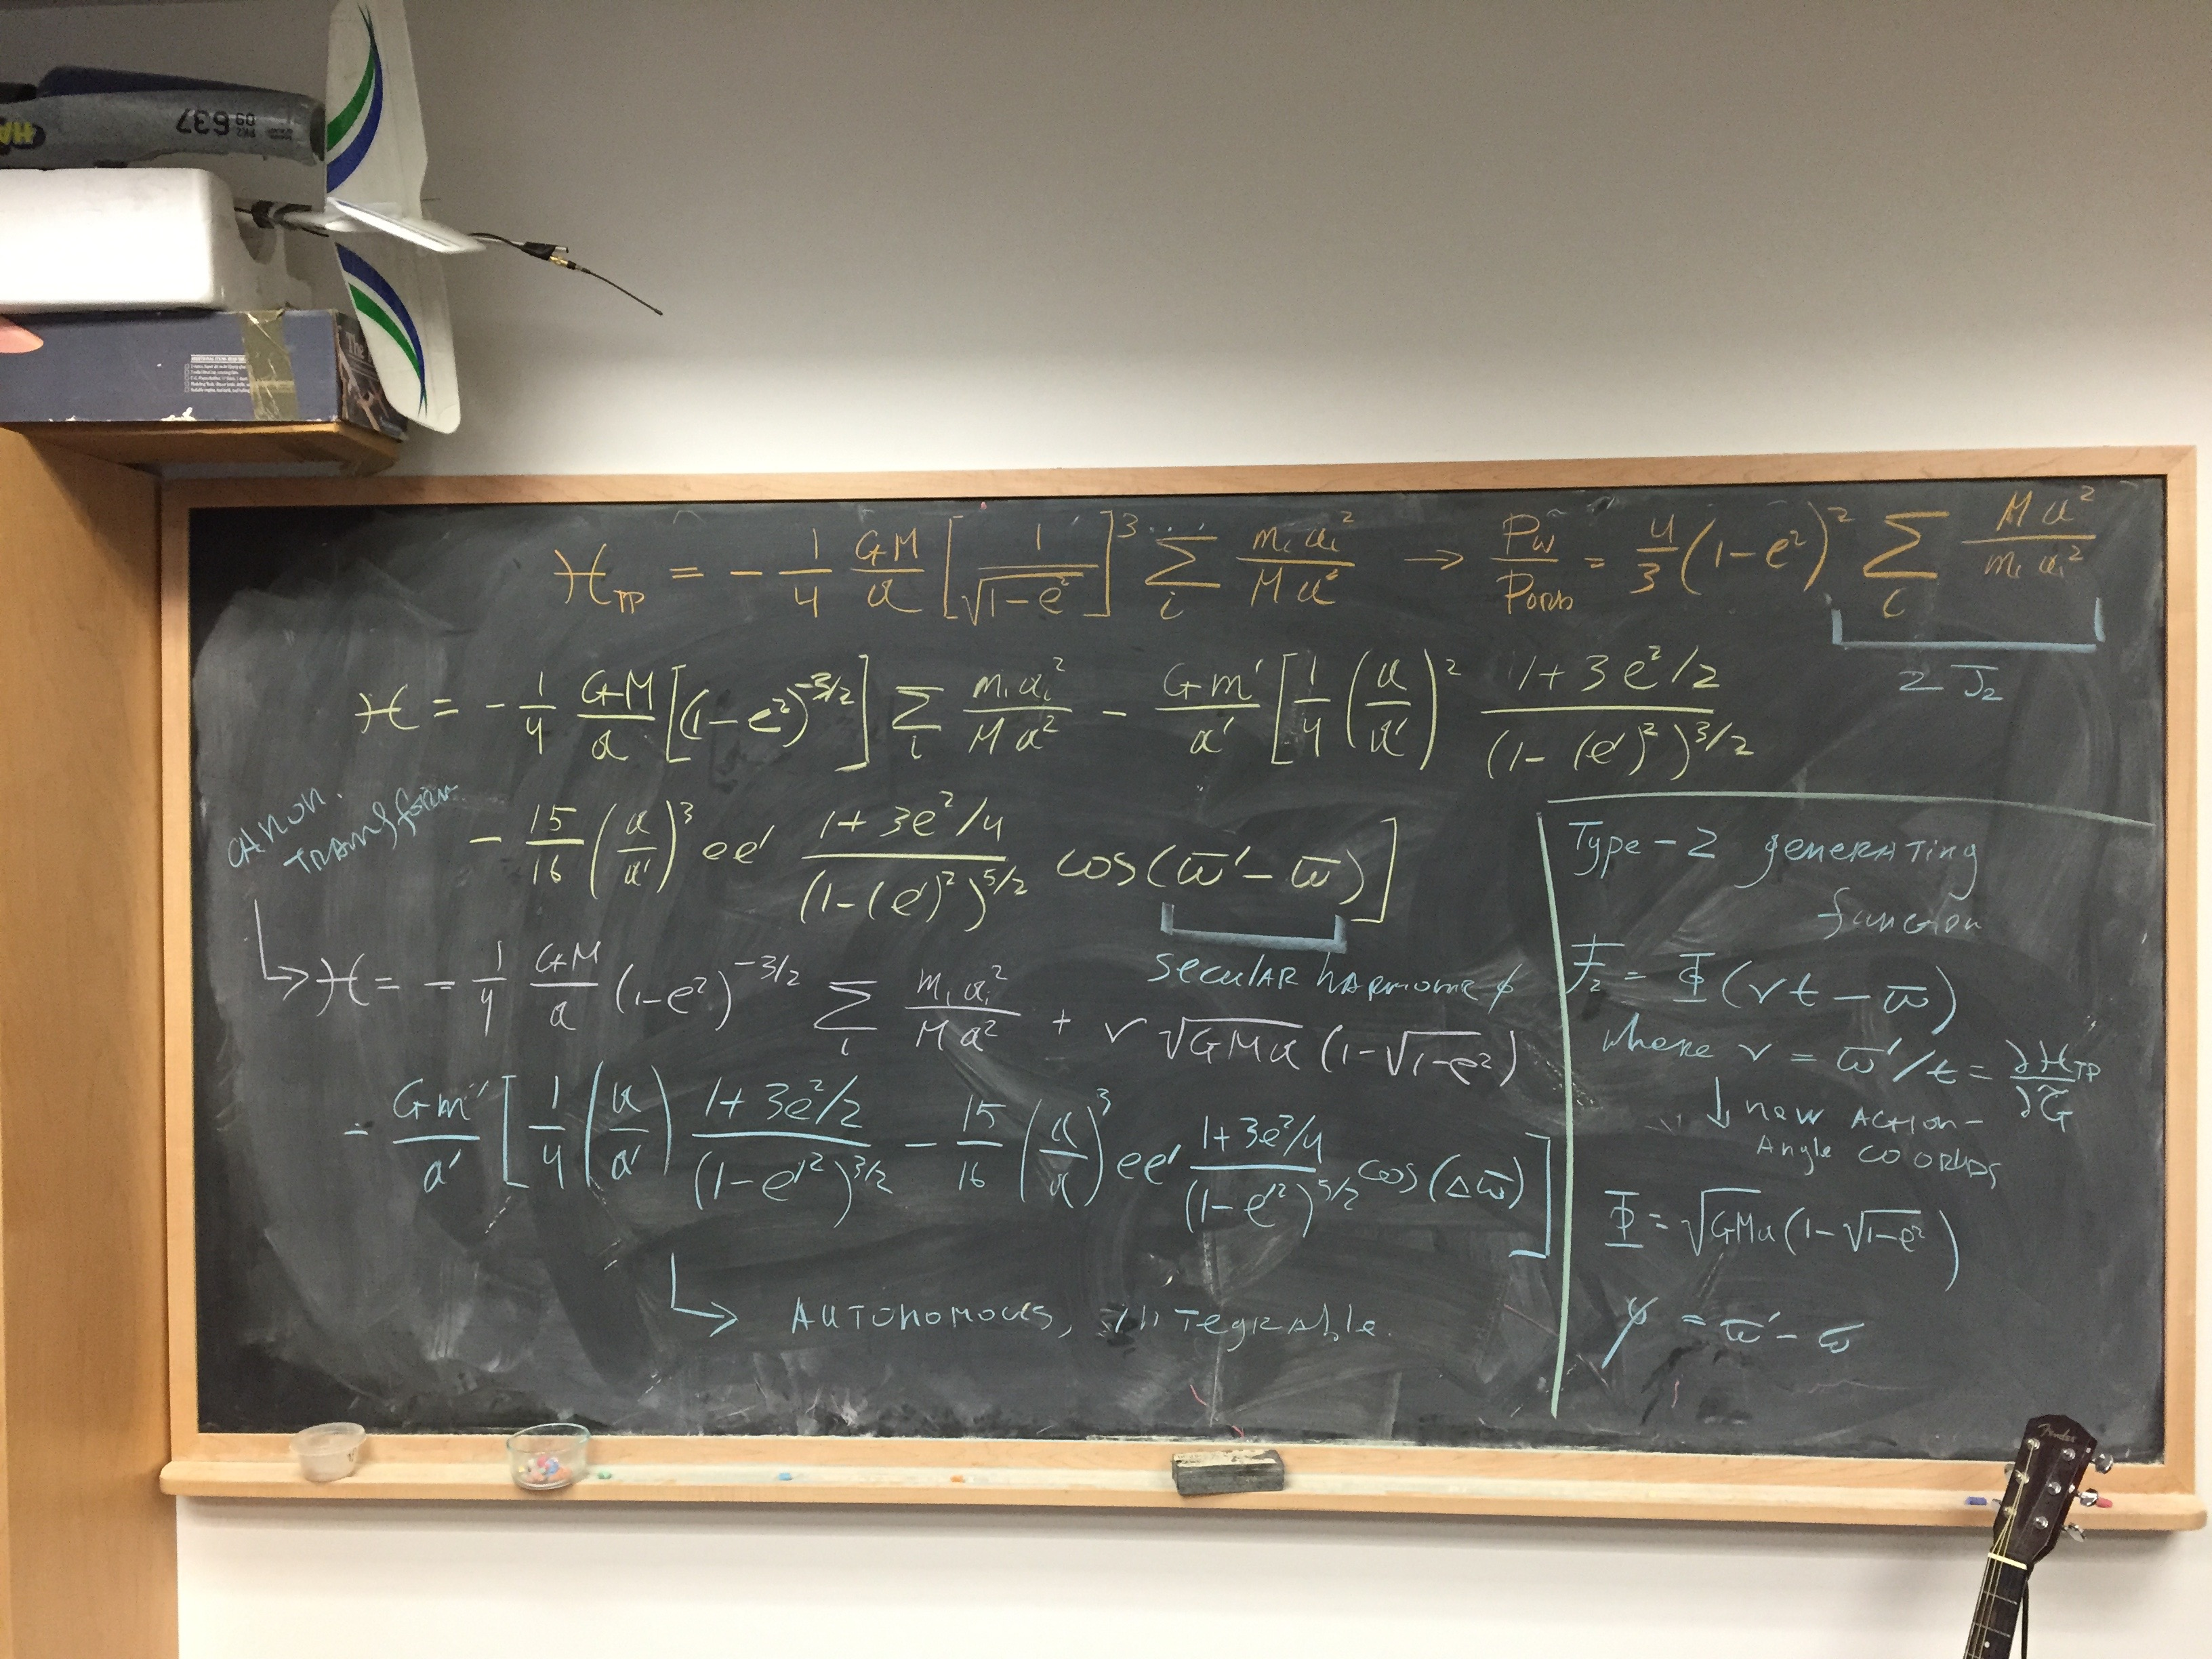 637
09
The
H_TP = - 1/4 GM/a [1/√(1-e²)]³ Σ_i m_i a_i²/M a² → P_ω/P_orb = 4/3 (1-e²)² Σ_i M a²/m_i a_i²
2 J₂
H = - 1/4 GM/a [(1-e²)^(-3/2)] Σ_i m_i a_i²/M a² - Gm'/a' [1/4 (a/a')² (1+3e²/2)/(1-(e')²)^(3/2)
- 15/16 (a/a')³ ee' (1+3e²/4)/(1-(e')²)^(5/2) cos(ϖ'-ϖ)]
secular harmonic ϕ
canon.
transform
↳ H = - 1/4 GM/a (1-e²)^(-3/2) Σ_i m_i a_i²/M a² + ν √GMa (1-√1-e²)
- Gm'/a' [1/4 (a/a') (1+3e²/2)/(1-e'²)^(3/2) - 15/16 (a/a')³ ee' (1+3e²/4)/(1-e'²)^(5/2) cos(Δϖ)]
↳ Autonomous, integrable.
Type-2 generating
function
F₂ = Φ(νt - ϖ)
where ν = ϖ'/t = ∂H_TP/∂G
↓ new action-
Angle coords
Φ = √GMa (1-√1-e²)
ψ = ϖ' - ϖ
Fender